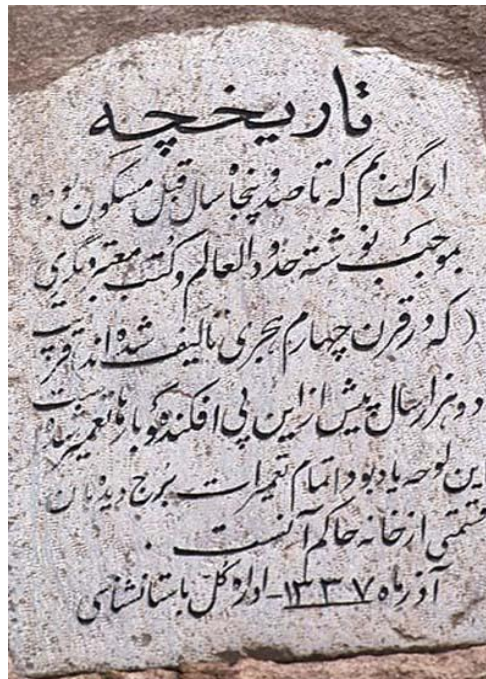 تاریخچه
ارگ بم که تا صد و پنجاه سال قبل مسکون بوده
بموجب نوشته حدود العالم و کتب معتبر دیگری
(که در قرن چهارم هجری تالیف شده اند) قریب
دو هزار سال پیش از این پی افکنده و بارها تعمیر شده است
این لوحه یادبود اتمام تعمیرات برج دیده بان
قسمتی از خانه حاکم آنست.
آذر ماه ۱۳۳۷ - اداره کل باستانشناسی